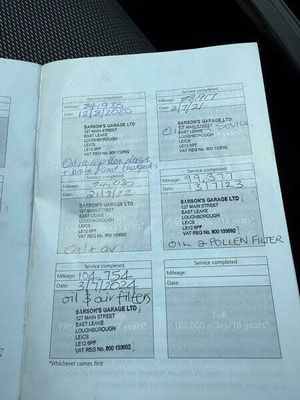 Service completed
Mileage:
Date: 12/8/2020
SARSON'S GARAGE LTD
127 MAIN STREET
EAST LEAKE
LOUGHBOROUGH
LEICS
LE12 6PF
VAT REG No. 800 133692
Oil air pollen plugs
+ brake fluid changed
Service completed
Mileage:
Date: 2/7/21
SARSON'S GARAGE LTD
127 MAIN STREET
EAST LEAKE
LOUGHBOROUGH
LEICS
LE12 6PF
VAT REG No. 800 133692
Oil Service
Service completed
Mileage: 94,030
Date: 21/7/22
SARSON'S GARAGE LTD
127 MAIN STREET
EAST LEAKE
LOUGHBOROUGH
LEICS
LE12 6PF
VAT REG No. 800 133692
Oil + air
Service completed
Mileage:
Date: 13/7/23
SARSON'S GARAGE LTD
127 MAIN STREET
EAST LEAKE
LOUGHBOROUGH
LEICS
LE12 6PF
VAT REG No. 800 133692
OIL & POLLEN FILTER
Service completed
Mileage: 104,754
Date: 3/7/2024
oil & air filters
SARSON'S GARAGE LTD
127 MAIN STREET
EAST LEAKE
LOUGHBOROUGH
LEICS
LE12 6PF
VAT REG No. 800 133692
Service completed
Mileage:
Date:
Full
180,000 miles/18 years*
*Whichever comes first